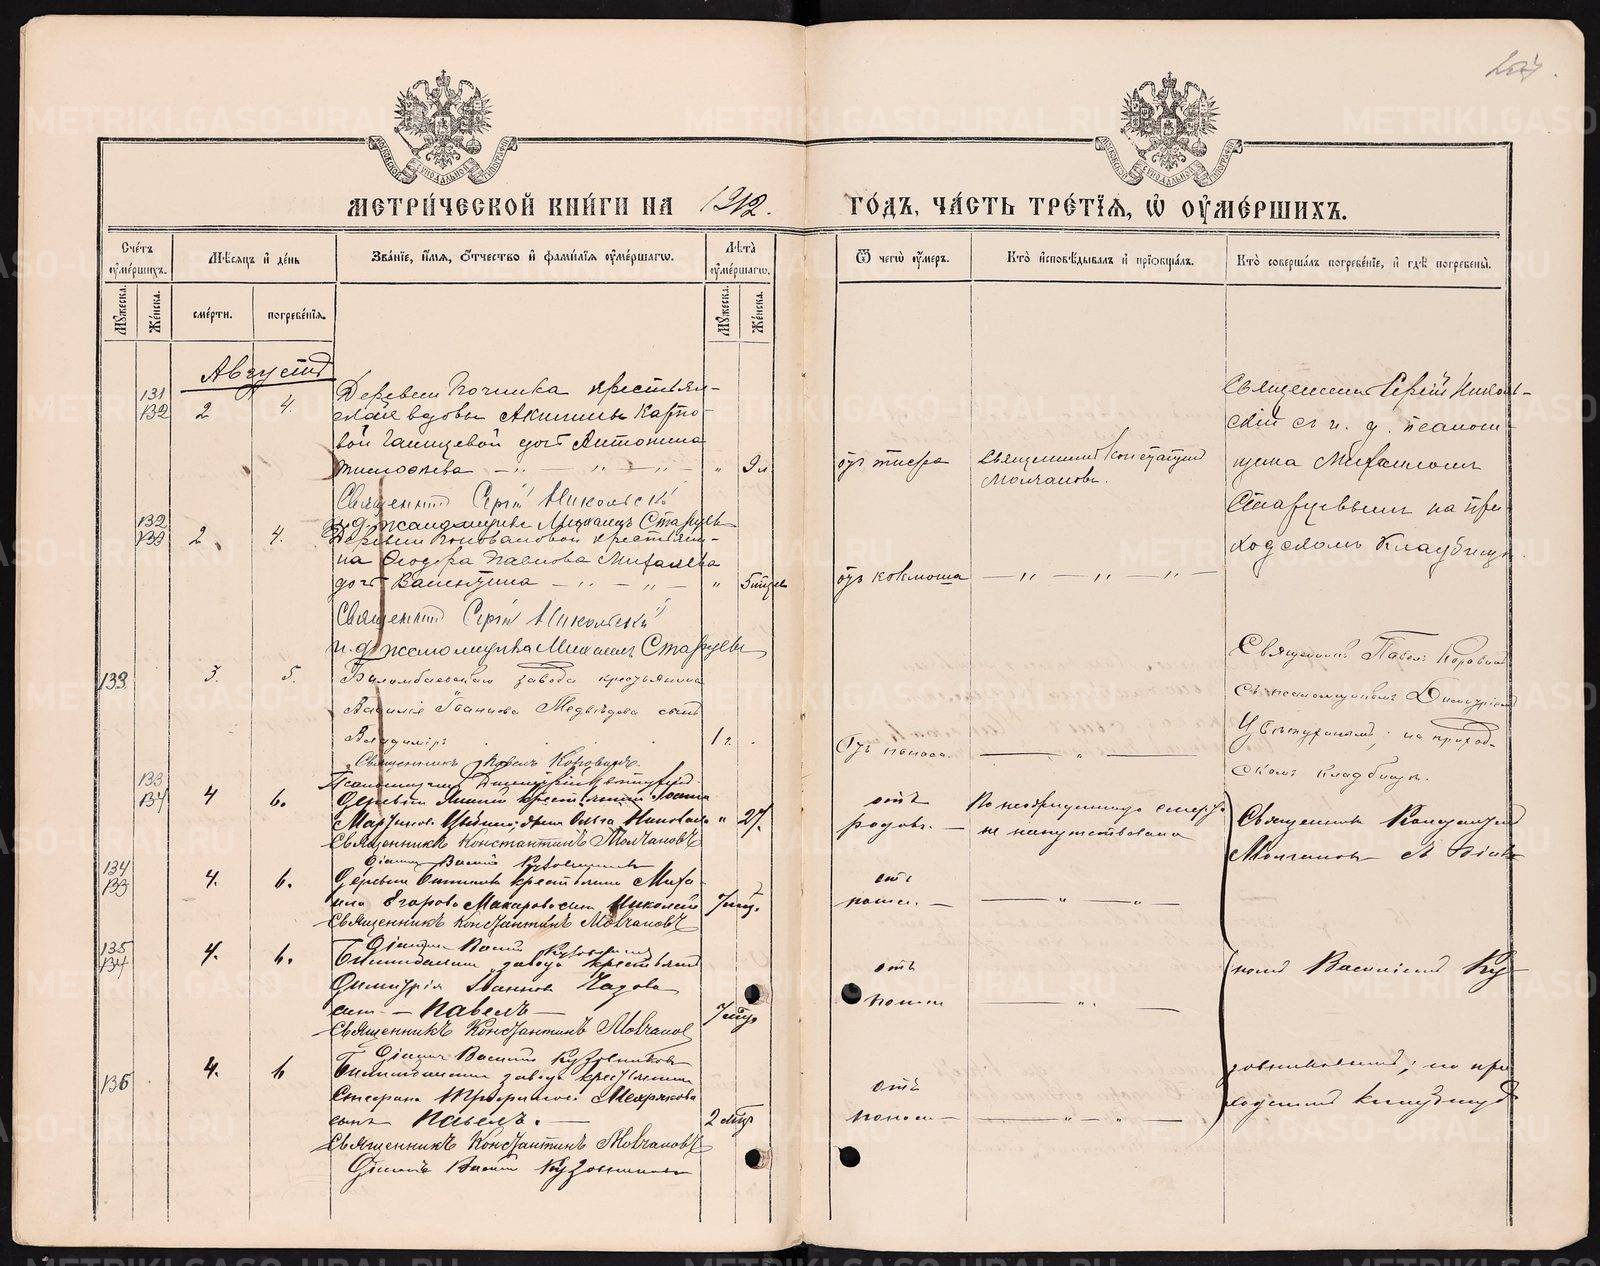 МЕТРИ́ЧЕСКОЙ КНИ́ГИ НА 1912.
ГО́ДЪ, ЧА́СТЬ ТРЕ́ТІѦ, Ѡ҆ ОУ҆МЕ́РШИХЪ.
Сче́тъ оу҆ме́ршихъ.
Мѣ́сяцъ и҆ де́нь
Зва́нїе, и҆́мѧ, ѻ҆́тчество и҆ фами́лїѧ оу҆ме́ршагѡ.
Лѣ́та оу҆ме́ршагѡ.
Ѿ чегѡ̀ оу҆́меръ.
Кто̀ и҆сповѣ́дывалъ и҆ прїѡбща́лъ.
Кто̀ соверша́лъ погребе́нїе, и҆ гдѣ̀ погребены̀.
Му́жеска.
Же́нска.
сме́рти.
погребе́нїѧ.
Му́жеска.
Же́нска.
Августъ
131
132 2 4.
Деревни Починка крестьян-
ской вдовы Акилины Карпо-
вой дочь Антонина
9 л
Священникъ Константинъ
Молчановъ.
Священникъ Сергій Николь-
скій съ и. д. псалом-
щика Михаиломъ
Старцевымъ на при-
ходскомъ кладбищѣ.
Священникъ Сергій Никольскій
и. д. псаломщика Михаилъ Старцевъ
132
133 2 4.
Деревни крестьяни-
на Ѳедора Павлова Михалева
дочь Валентина
5 мѣс
Священникъ Сергій Никольскій
и. д. псаломщика Михаилъ Старцевъ
133. 3. 5.
Билимбаевскаго завода крестьянина
Василія Иванова Медвѣдева сынъ
Владиміръ
1 г.
Отъ поноса.
Священникъ Павелъ Коровинъ
съ псаломщикомъ Димитріемъ
на приход-
скомъ кладбищѣ.
Священникъ Павелъ Коровинъ.
Псаломщикъ Димитрій
133
134 4 6.
Деревни крестьянина Іоанна
жена Ольга
27.
отъ
родовъ.
По неожиданной смерти
не напутствована
Священникъ Константинъ
Молчановъ
Священникъ Константинъ Молчановъ
Діаконъ Василій Кузовниковъ
134
133 4. 6.
Деревни крестьянина Миха-
ила Егорова Макарова сынъ Николай
7 мѣс.
отъ
поноса.
Священникъ Константинъ Молчановъ
Діаконъ Василій Кузовниковъ
135
134 4. 6.
Билимбаевскаго завода крестьянина
Димитрія Іоаннова
сынъ Павелъ
7 мѣс
отъ
поноса
комъ Василіемъ Ку-
Священникъ Константинъ Молчановъ
Діаконъ Василій Кузовниковъ
136 4. 6
Билимбаевскаго завода крестьянина
Стефана Трофимова Мехрякова
сынъ Павелъ.
2 мѣс
отъ
поноса
зовниковымъ; на при-
ходскомъ кладбищѣ
Священникъ Константинъ Молчановъ
Діаконъ Василій Кузовниковъ
METRIKI.GASO-URAL.RU